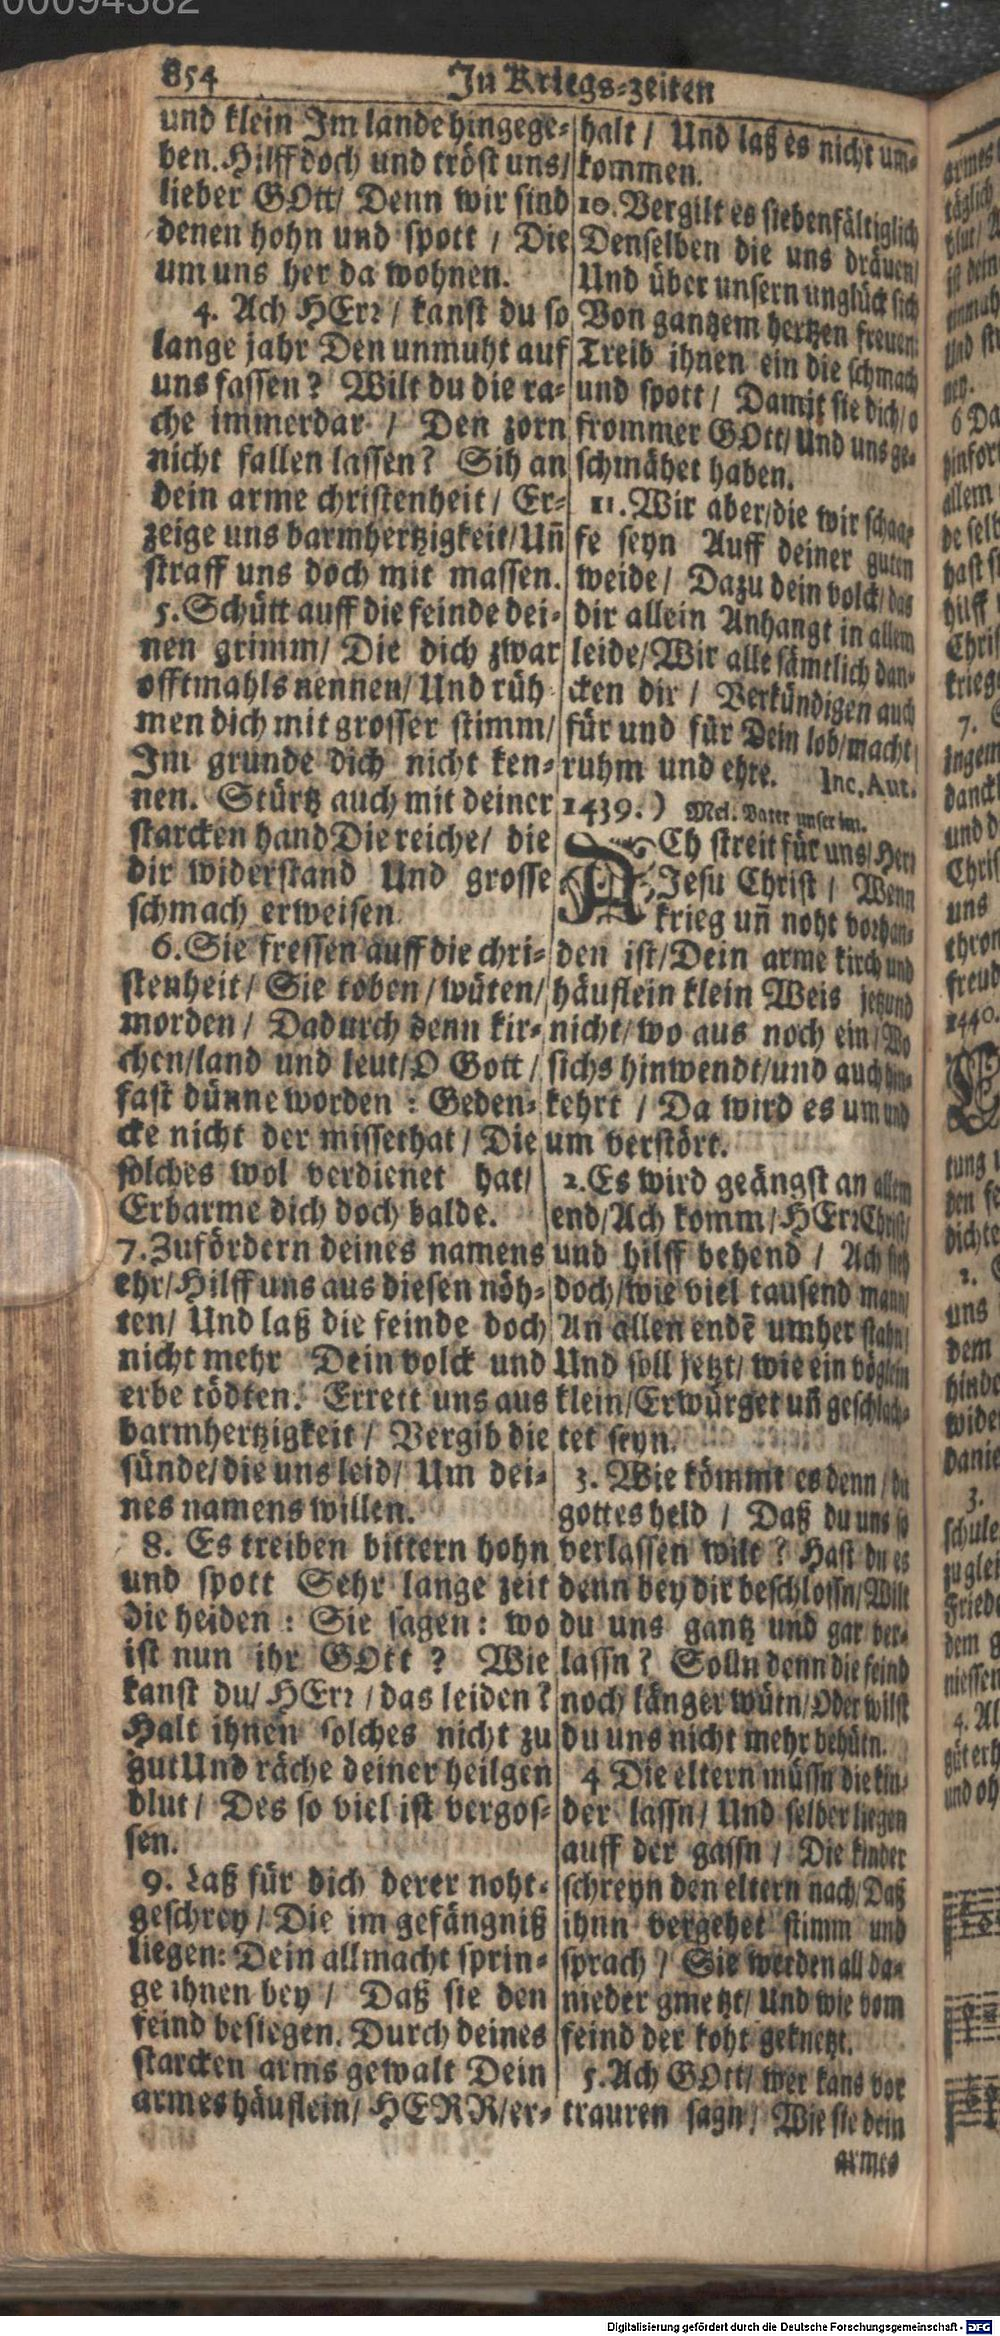 00094382
854 In Kriegs-zeiten
und klein Im lande hingege-
ben. Hilff doch und tröst uns/
lieber GOtt/ Denn wir sind
denen hohn und spott / Die
um uns her da wohnen.
4. Ach HErr / kanst du so
lange jahr Den unmuht auf
uns fassen? Wilt du die ra-
che immerdar / Den zorn
nicht fallen lassen? Sih an
dein arme christenheit / Er-
zeige uns barmhertzigkeit/ Uñ
straff uns doch mit massen.
5. Schütt auff die feinde dei-
nen grimm/ Die dich zwar
offtmahls nennen/ Und rüh-
men dich mit grosser stimm/
Im grunde dich nicht ken-
nen. Stürtz auch mit deiner
starcken hand Die reiche/ die
dir widerstand Und grosse
schmach erweisen.
6. Sie fressen auff die chri-
stenheit/ Sie toben/ wüten/
morden / Dadurch denn kir-
chen/land und leut/ O Gott /
fast dünne worden : Geden-
cke nicht der missethat / Die
solches wol verdienet hat/
Erbarme dich doch balde.
7. Zufördern deines namens
ehr/ Hilff uns aus diesen nöh-
ten/ Und laß die feinde doch
nicht mehr Dein volck und
erbe tödten. Errett uns aus
barmhertzigkeit / Vergib die
sünde/ die uns leid/ Um dei-
nes namens willen.
8. Es treiben bittern hohn
und spott Sehr lange zeit
die heiden : Sie sagen: wo
ist nun ihr GOtt ? Wie
kanst du/ HErr / das leiden?
Halt ihnen solches nicht zu
gut Und räche deiner heilgen
blut / Des so viel ist vergos-
sen.
9. Laß für dich derer noht-
geschrey / Die im gefängniß
liegen: Dein allmacht sprin-
ge ihnen bey / Daß sie den
feind besiegen. Durch deines
starcken arms gewalt Dein
armes häuflein/ HERR/er-
halt / Und laß es nicht um-
kommen.
10. Vergilt es siebenfältiglich
Denselben die uns dräuen/
Und über unsern unglück sich
Von gantzem hertzen freuen:
Treib ihnen ein die schmach
und spott / Damit sie dich/ o
frommer GOtt/ Und uns ge-
schmähet haben.
11. Wir aber/die wir schaa-
fe seyn Auff deiner guten
weide / Dazu dein volck/ das
dir allein Anhangt in allem
leide/ Wir alle sämtlich dan-
cken dir / Verkündigen auch
für und für Dein lob/macht/
ruhm und ehre. Inc. Aut.
1439. ) Mel. Vater unser im.
ACh streit für uns/ Herr
Jesu Christ / Wenn
krieg uñ noht vorhan-
den ist/ Dein arme kirch und
häuflein klein Weis jetzund
nicht/ wo aus noch ein/ Wo
sichs hinwendt/und auch hin-
kehrt / Da wird es um und
um verstört.
2. Es wird geängst an allem
end/ Ach komm/ HErr Christ/
und hilff behend / Ach sieh
doch/ wie viel tausend mann/
An allen endē umher stahn/
Und soll jetzt/ wie ein vöglein
klein/ Erwürget uñ geschlach-
tet seyn.
3. Wie kömmt es denn / du
gottes held / Daß du uns so
verlassen wilt ? Hast du es
denn bey dir beschlossn/ Wilt
du uns gantz und gar ver-
lassn? Solln denn die feind
noch länger wütn/ Oder wilst
du uns nicht mehr behütn.
4 Die eltern müssn die kin-
der lassn/ Und selber liegen
auff der gassn / Die kinder
schreyn den eltern nach/ Daß
ihnn vergehet stimm und
sprach / Sie werden all da-
nieder gmetzt/ Und wie vom
feind der koht geknetzt.
5. Ach GOtt/ wer kans vor
trauren sagn/ Wie sie dein
armes
Digitalisierung gefördert durch die Deutsche Forschungsgemeinschaft - DFG